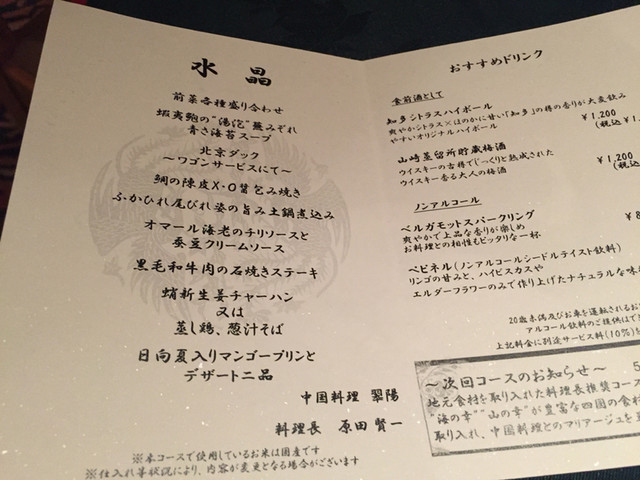 水晶
前菜各種盛り合わせ
蝦夷鮑の"湯泡"蕪みぞれ
青さ海苔スープ
北京ダック
～ワゴンサービスにて～
鯛の陳皮X・O醤包み焼き
ふかひれ尾びれ姿の旨み土鍋煮込み
オマール海老のチリソースと
蚕豆クリームソース
黒毛和牛肉の石焼きステーキ
蛸新生姜チャーハン
又は
蒸し鶏、葱汁そば
日向夏入りマンゴープリンと
デザート二品
中国料理 翠陽
料理長 原田賢一
※本コースで使用しているお米は国産です
※仕入れ等状況により、内容が変更となる場合がございます
おすすめドリンク
食前酒として
知多シトラスハイボール
¥1,200
爽やかシトラス×ほのかに甘い「知多」の樽の香りが大変飲み
(税込¥1
やすいオリジナルハイボール
山崎蒸留所貯蔵梅酒
¥1,200
ウイスキーの古樽でじっくりと熟成された
(税込
ウイスキー香る大人の梅酒
ノンアルコール
ベルガモットスパークリング
¥8
爽やかで上品な香りが楽しめ
お料理との相性もピッタリな一杯
ペピネル(ノンアルコールシードルテイスト飲料)
リンゴの甘みと、ハイビスカスや
エルダーフラワーのみで作り上げたナチュラルな味
20歳未満及びお車を運転されるお
アルコール飲料のご提供はで
上記料金に別途サービス料(10%)を
～次回コースのお知らせ～ 5
地元食材を取り入れた料理長推賞コース
"海の幸""山の幸"が豊富な四国の食材
取り入れ、中国料理とのマリアージュを